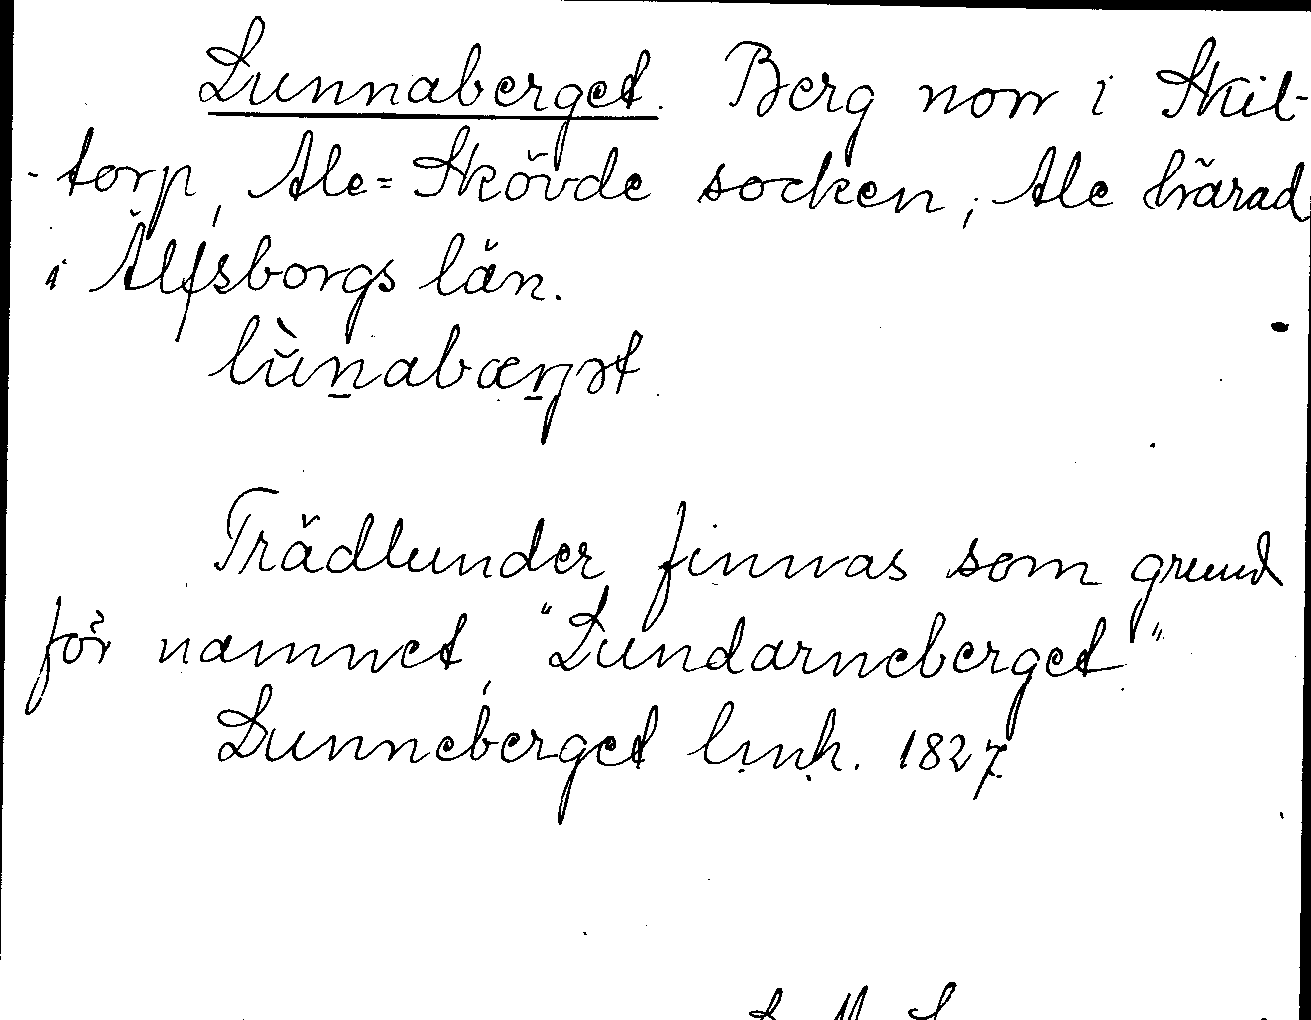 Lunnaberget. Berg norr i Skil-
-torp, Ale=Skövde socken, Ale härad
i Älfsborgs län.
lùnabærjət
Trädlunder finnas som grund
för namnet, "Lundarneberget"
Lunneberget l.m.h. 1827